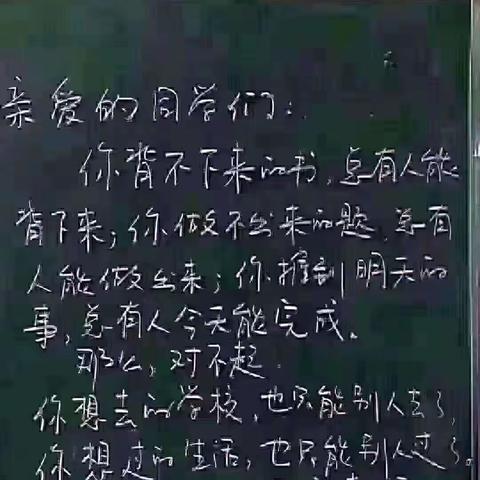 亲爱的同学们:
你背不下来的书,总有人能
背下来;你做不出来的题,总有
人能做出来;你推到明天的
事,总有人今天能完成。
那么,对不起.
你想去的学校,也只能别人去了,
你想过的生活,也只能别人过了。